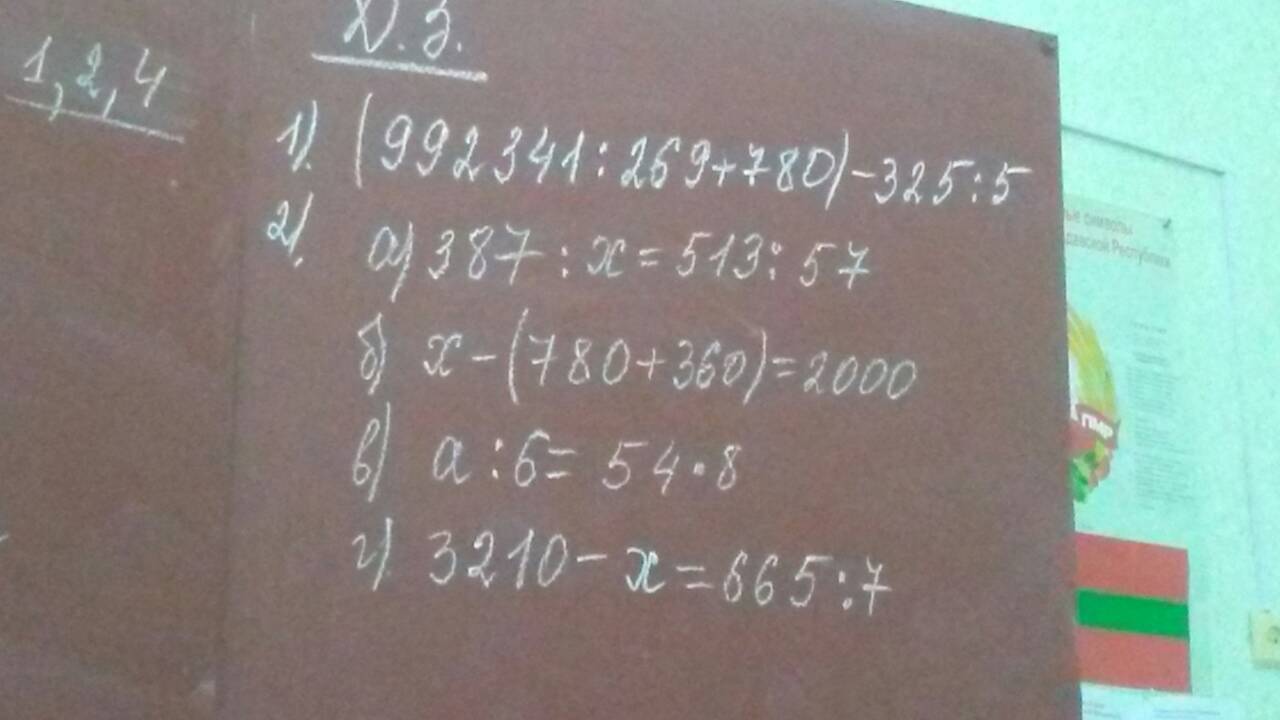 1, 2, 4
Д. З.
1). (992341 : 269 + 780) - 325 : 5
2).
а) 387 : x = 513 : 57
б) x - (780 + 360) = 2000
в) a : 6 = 54 · 8
г). 3210 - x = 665 : 7
ые символы
давской Республики
ПМР